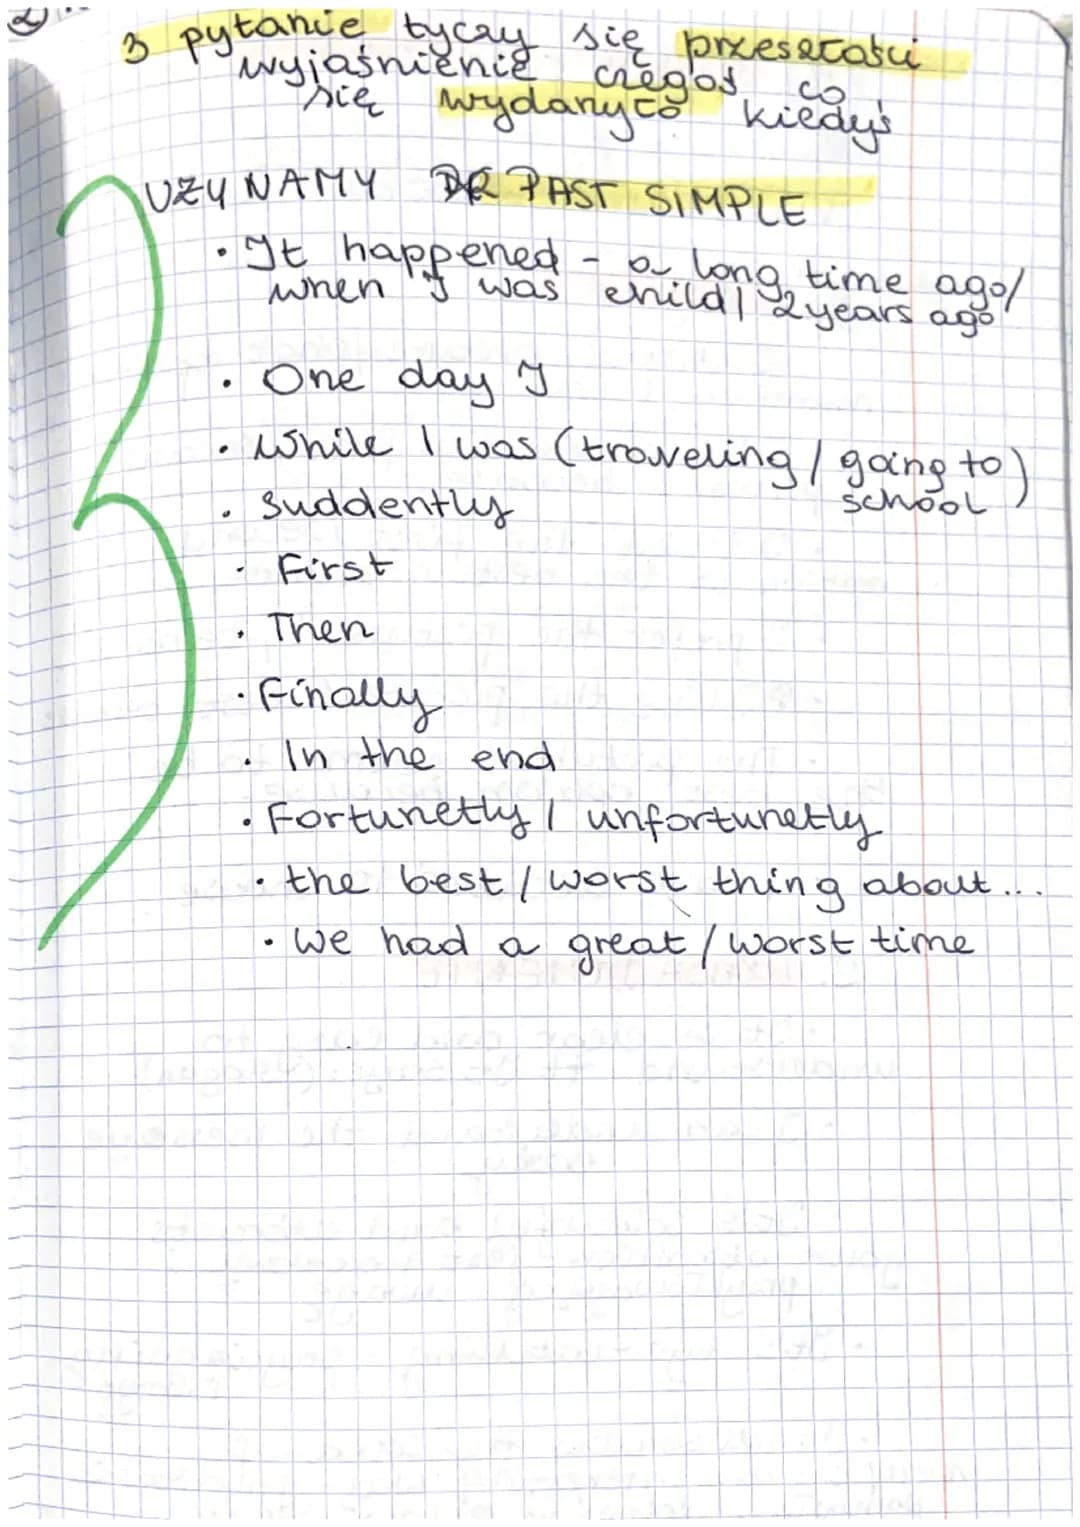 3 pytanie tyczy się przeszłości
wyjaśnienie czegoś co
się wydarzyło kiedyś
UZYWAMY PAST SIMPLE
• It happened - a long time ago/
when I was child/ 2 years ago
• One day I
• While I was (traveling / going to)
school
• suddently
• First
• Then
• Finally
• In the end
• Fortunetly / unfortunetly
• the best / worst thing about...
• We had a great / worst time
3